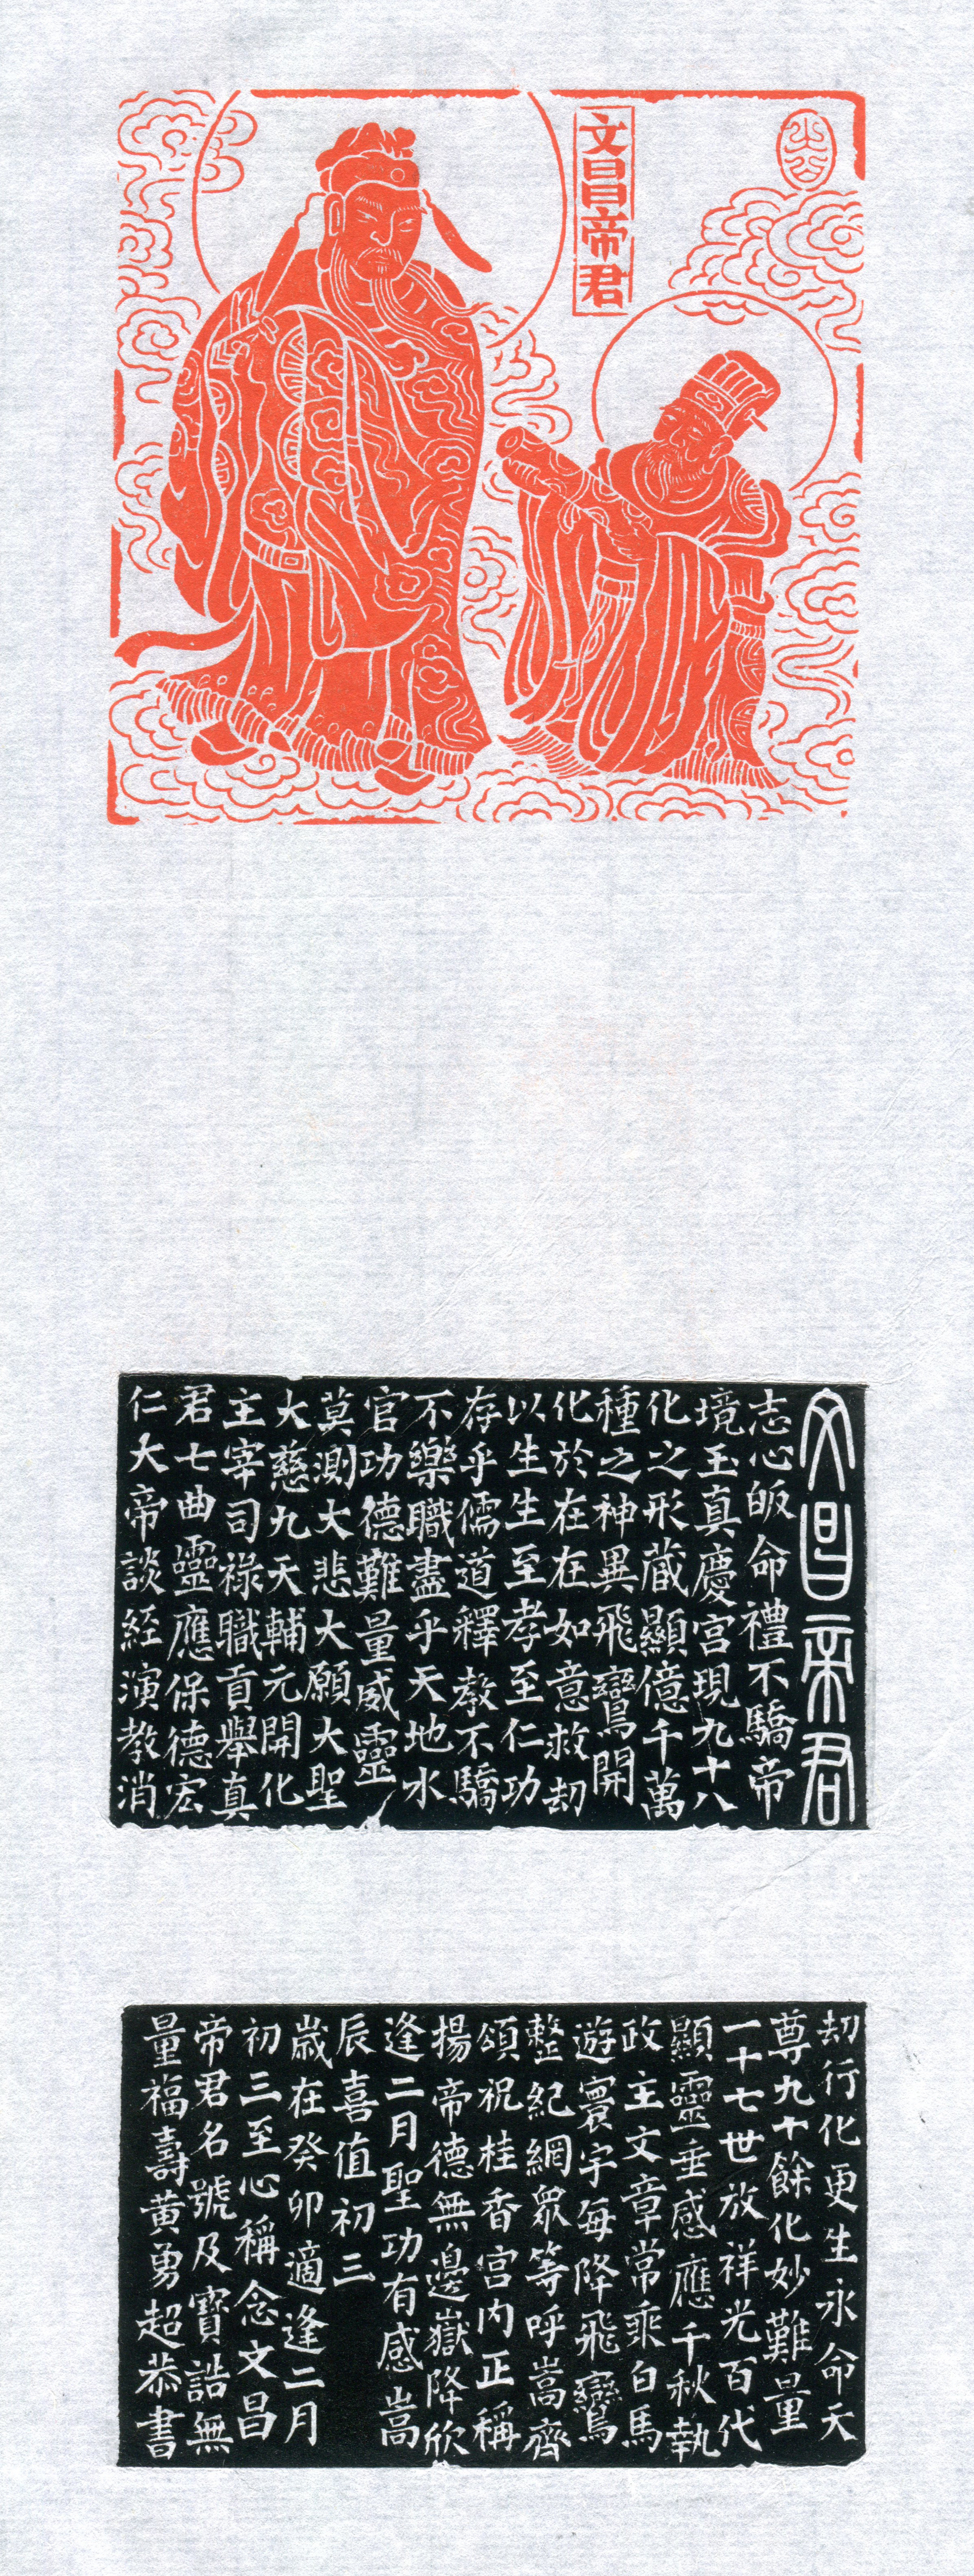 文昌帝君
文昌帝君
志心皈命禮不驕帝
境玉真慶宮現九十八
化之形藏顯億千萬
種之神異飛鸞開
化於在在如意救劫
以生生至孝至仁功
存乎儒道釋教不驕
不樂職盡乎天地水
官功德難量威靈
莫測大悲大願大聖
大慈九天輔元開化
主宰司祿職貢舉真
君七曲靈應保德宏
仁大帝談經演教消
劫行化更生永命天
尊九十餘化妙難量
一十七世放祥光百代
顯靈垂感應千秋執
政主文章常乘白馬
遊寰宇每降飛鸞
整紀綱眾等呼嵩齊
頌祝桂香宮內正稱
揚帝德無邊嶽降欣
逢二月聖功有感嵩
辰喜值初三
歲在癸卯適逢二月
初三至心稱念文昌
帝君名號及寶誥無
量福壽黃勇超恭書